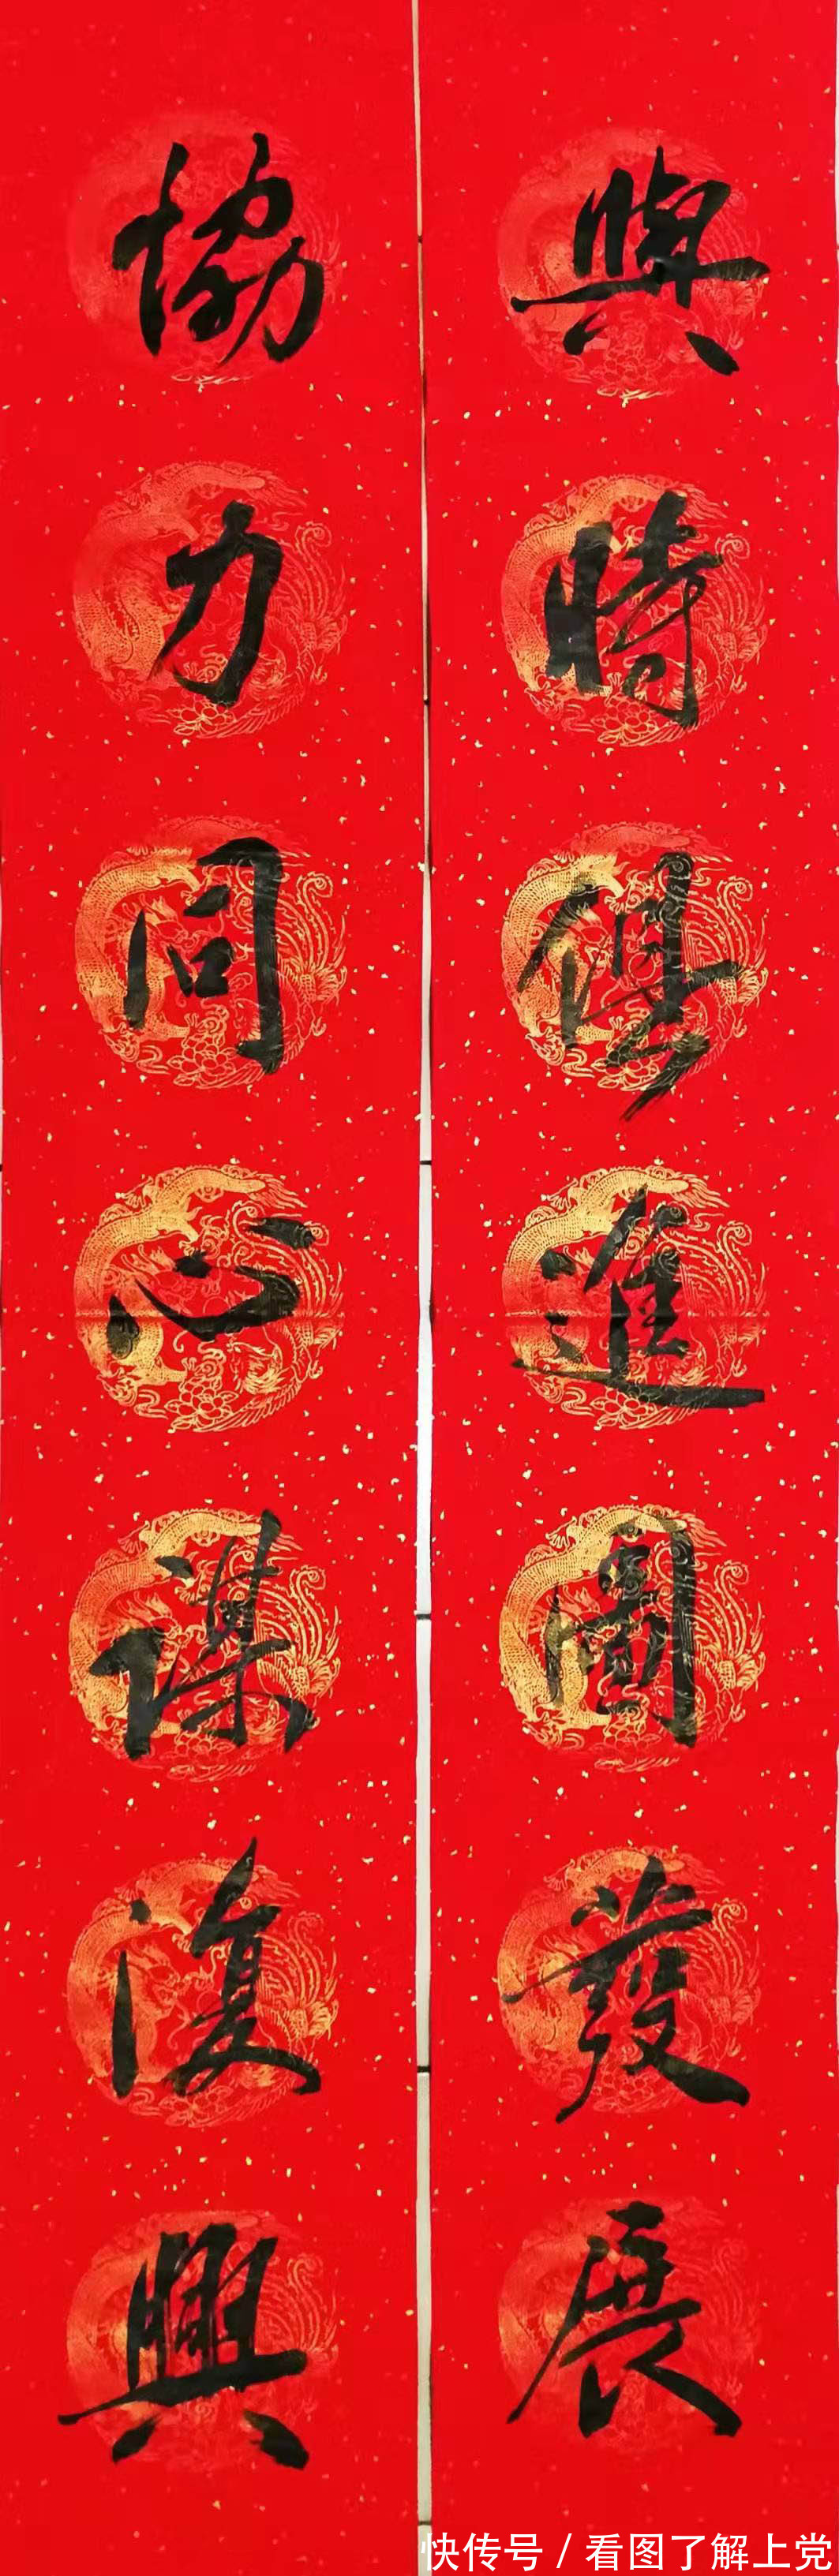 與時俱進圖發展
協力同心謀復興
快传号 / 看图了解上党